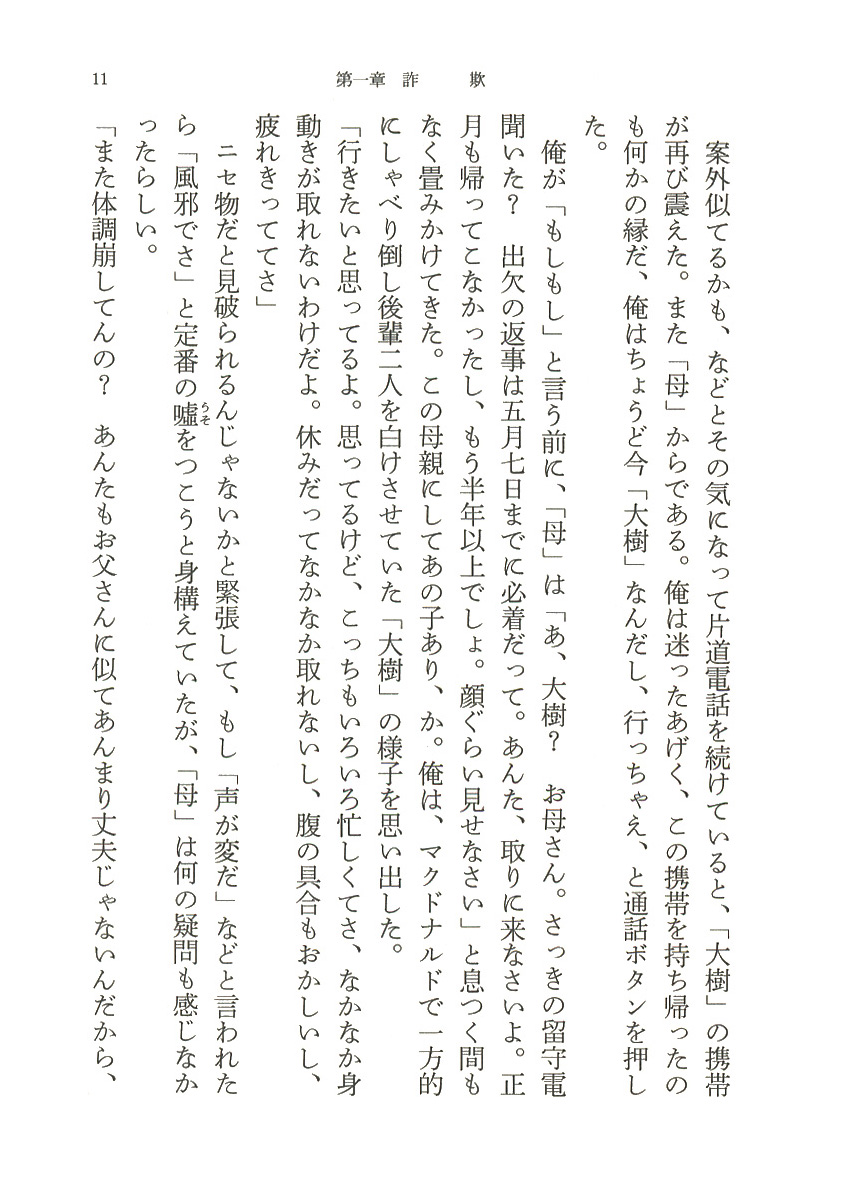 11
第一章 詐 欺
案外似てるかも、などとその気になって片道電話を続けていると、「大樹」の携帯
が再び震えた。また「母」からである。俺は迷ったあげく、この携帯を持ち帰ったの
も何かの縁だ、俺はちょうど今「大樹」なんだし、行っちゃえ、と通話ボタンを押し
た。
俺が「もしもし」と言う前に、「母」は「あ、大樹？ お母さん。さっきの留守電
聞いた？ 出欠の返事は五月七日までに必着だって。あんた、取りに来なさいよ。正
月も帰ってこなかったし、もう半年以上でしょ。顔ぐらい見せなさい」と息つく間も
なく畳みかけてきた。この母親にしてあの子あり、か。俺は、マクドナルドで一方的
にしゃべり倒し後輩二人を白けさせていた「大樹」の様子を思い出した。
「行きたいと思ってるよ。思ってるけど、こっちもいろいろ忙しくてさ、なかなか身
動きが取れないわけだよ。休みだってなかなか取れないし、腹の具合もおかしいし、
疲れきっててさ」
ニセ物だと見破られるんじゃないかと緊張して、もし「声が変だ」などと言われた
ら「風邪でさ」と定番の嘘をつこうと身構えていたが、「母」は何の疑問も感じなか
ったらしい。
「また体調崩してんの？ あんたもお父さんに似てあんまり丈夫じゃないんだから、